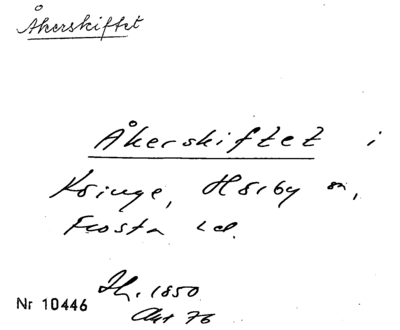 Åkerskiftet
Åkerskiftet i
Kringe, Hörby sn,
Frosta hd.
Jh. 1850
Nr 10446
Akt 76